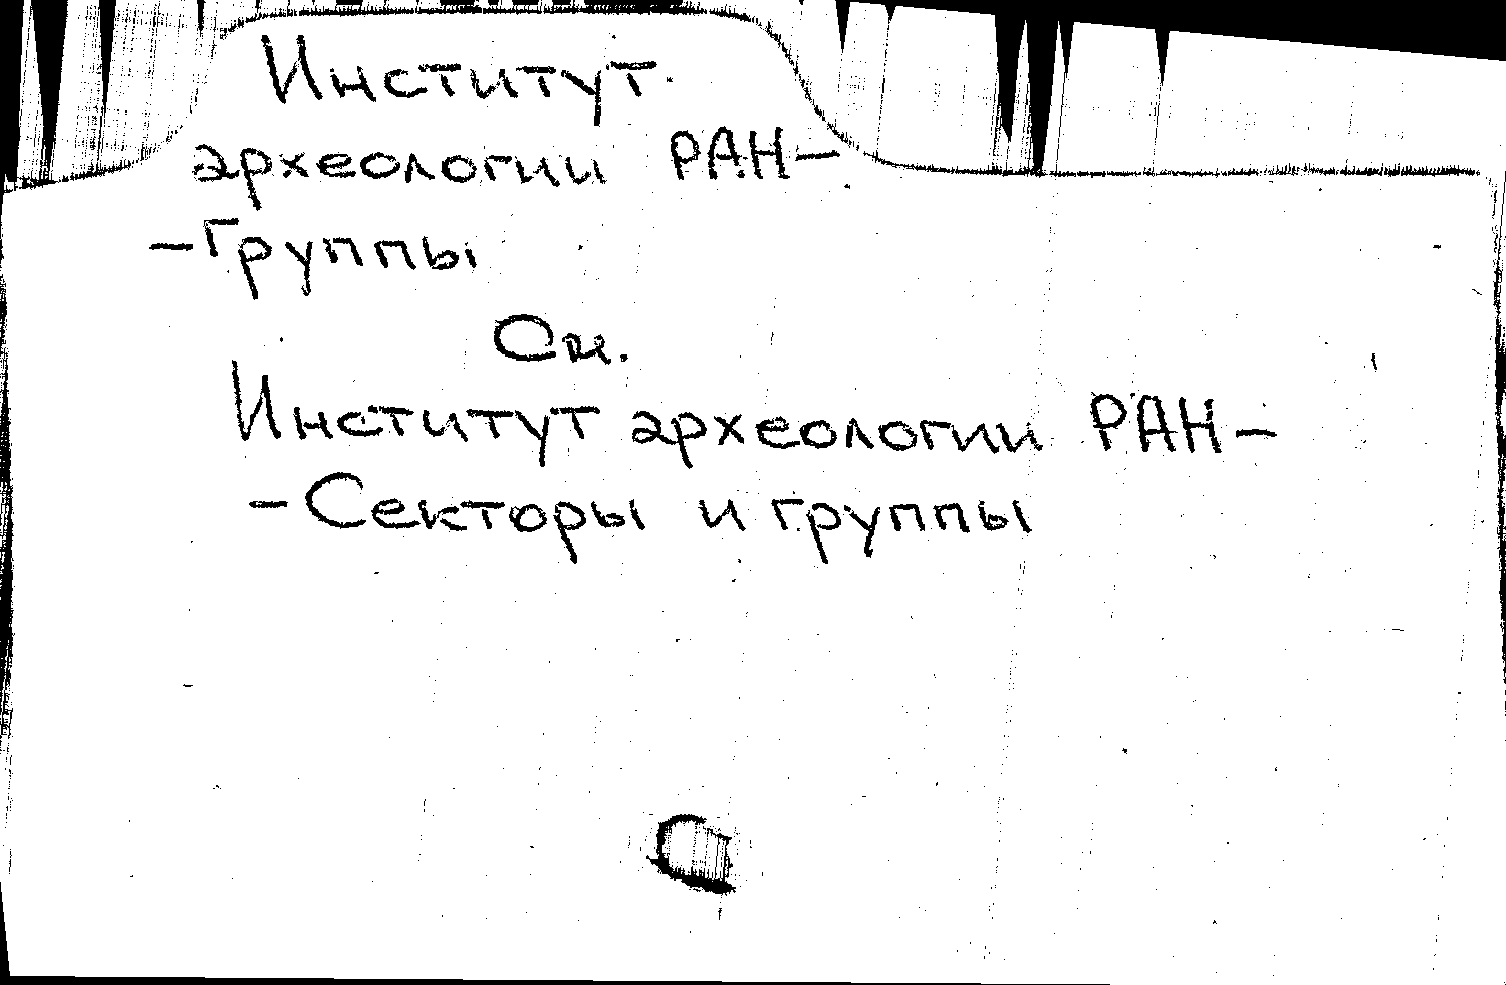 Институт
археологии РАН–
–Группы
См.
Институт археологии РАН–
–Секторы и группы